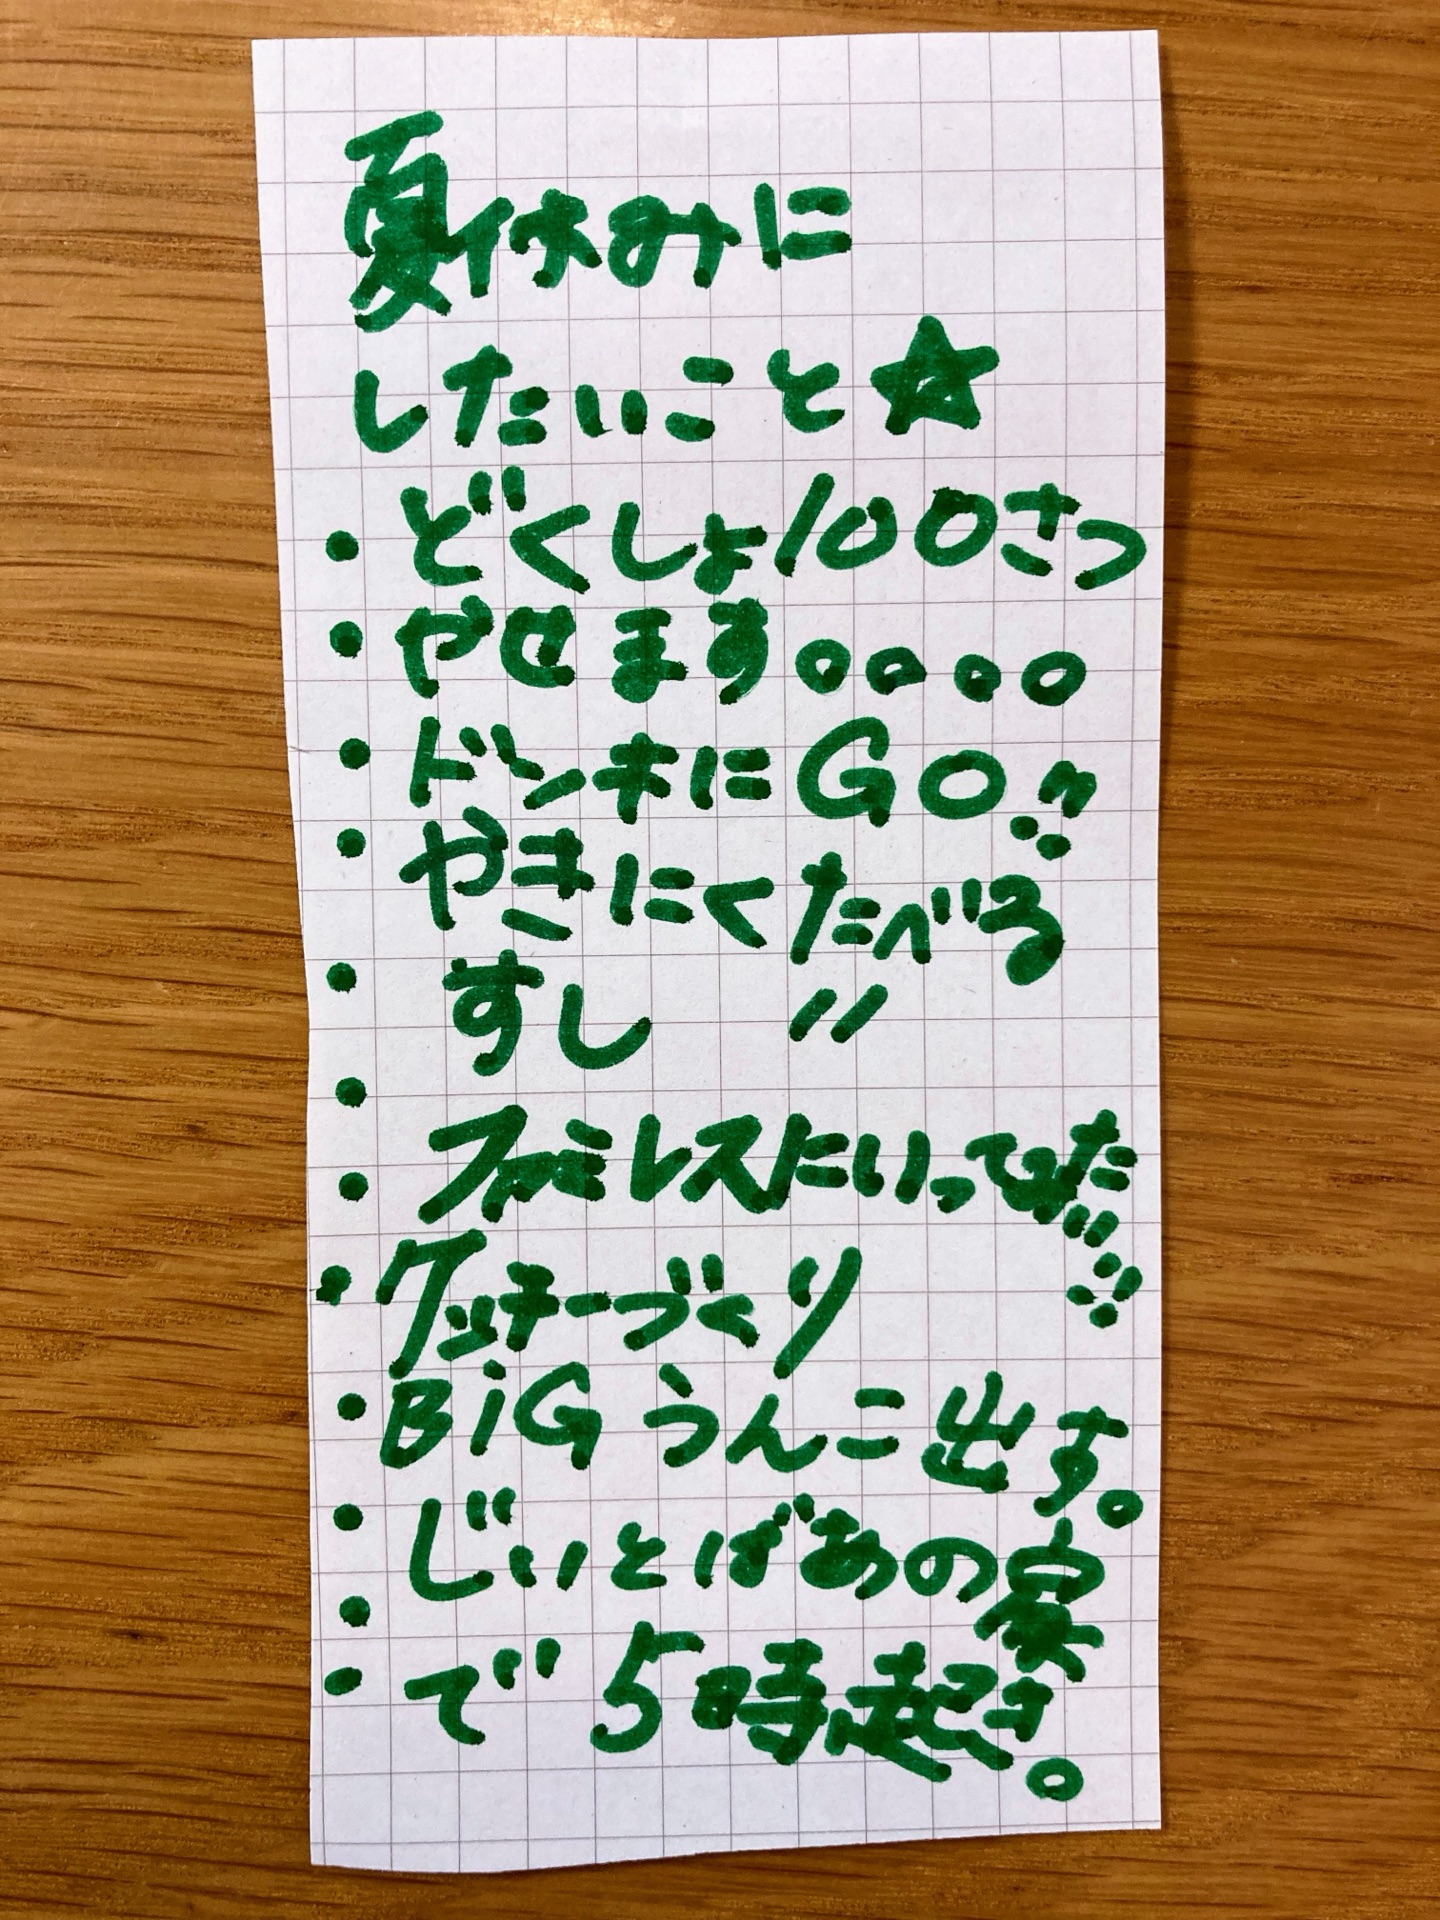 夏休みに
したいこと☆
・どくしょ100さつ
・やせます。。。。
・ドンキにGO!!
・やきにくたべる
・すし 〃
・ファミレスにいってみたい!!
・クッキーづくり
・BiGうんこ出す。
・じいとばあの家
・で5時起き。